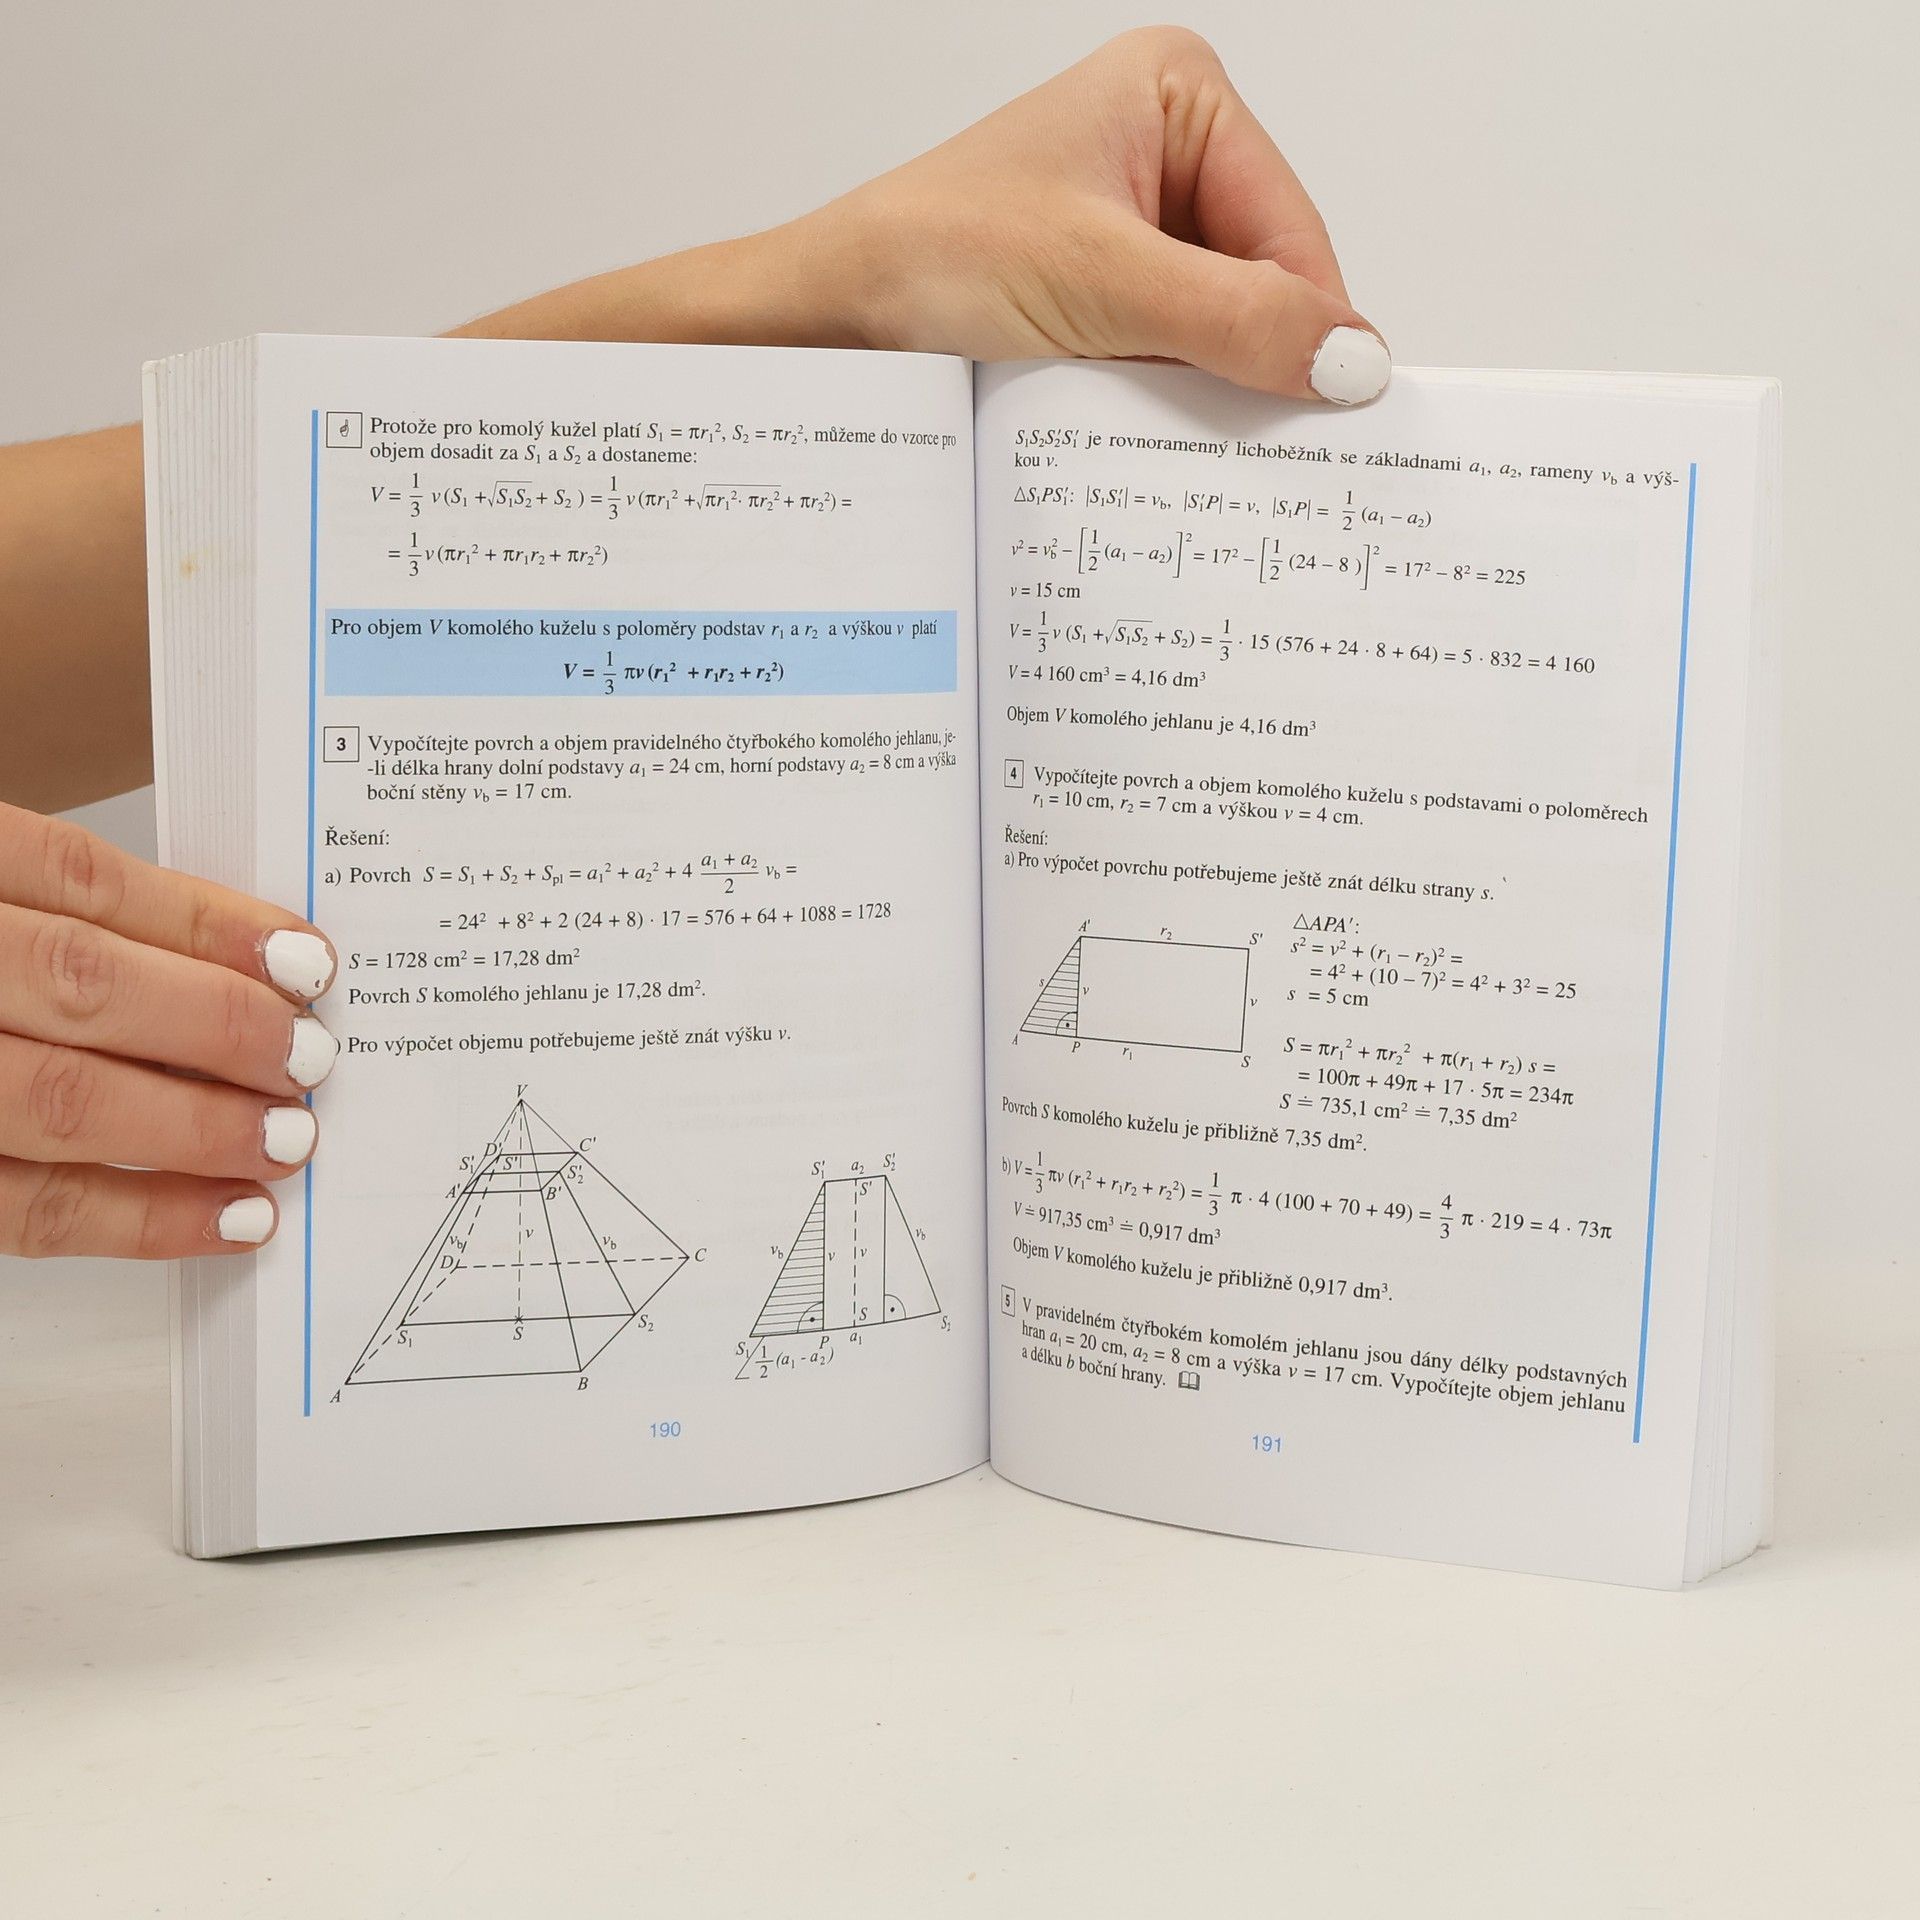 Protože pro komolý kužel platí S₁ = πr₁², S₂ = πr₂², můžeme do vzorce pro
objem dosadit za S₁ a S₂ a dostaneme:
V = 1/3 v (S₁ + √S₁S₂ + S₂ ) = 1/3 v (πr₁² + √πr₁² · πr₂² + πr₂²) =
= 1/3 v (πr₁² + πr₁r₂ + πr₂²)
Pro objem V komolého kuželu s poloměry podstav r₁ a r₂ a výškou v platí
V = 1/3 πv (r₁² + r₁r₂ + r₂²)
3 Vypočítejte povrch a objem pravidelného čtyřbokého komolého jehlanu, je-
-li délka hrany dolní podstavy a₁ = 24 cm, horní podstavy a₂ = 8 cm a výška
boční stěny v_b = 17 cm.
Řešení:
a) Povrch S = S₁ + S₂ + S_pl = a₁² + a₂² + 4 (a₁ + a₂)/2 v_b =
= 24² + 8² + 2 (24 + 8) · 17 = 576 + 64 + 1088 = 1728
S = 1728 cm² = 17,28 dm²
Povrch S komolého jehlanu je 17,28 dm².
) Pro výpočet objemu potřebujeme ještě znát výšku v.
V
D' C'
S₁' S' S₂'
A' B'
v_b v v_b
D C
S₁ S S₂
A B
S₁' a₂ S₂'
S'
v_b v v v_b
S
S₁ P a₁ S₂
1/2 (a₁ - a₂)
190
S₁S₂S₂'S₁' je rovnoramenný lichoběžník se základnami a₁, a₂, rameny v_b a výš-
kou v.
△S₁PS₁': |S₁S₁'| = v_b, |S₁'P| = v, |S₁P| = 1/2 (a₁ – a₂)
v² = v_b² – [1/2 (a₁ – a₂)]² = 17² – [1/2 (24 – 8 )]² = 17² – 8² = 225
v = 15 cm
V = 1/3 v (S₁ + √S₁S₂ + S₂) = 1/3 · 15 (576 + 24 · 8 + 64) = 5 · 832 = 4 160
V = 4 160 cm³ = 4,16 dm³
Objem V komolého jehlanu je 4,16 dm³
4 Vypočítejte povrch a objem komolého kuželu s podstavami o poloměrech
r₁ = 10 cm, r₂ = 7 cm a výškou v = 4 cm.
Řešení:
a) Pro výpočet povrchu potřebujeme ještě znát délku strany s.
A' r₂ S'
s v v
A P r₁ S
△APA':
s² = v² + (r₁ – r₂)² =
= 4² + (10 – 7)² = 4² + 3² = 25
s = 5 cm
S = πr₁² + πr₂² + π(r₁ + r₂) s =
= 100π + 49π + 17 · 5π = 234π
S ≐ 735,1 cm² ≐ 7,35 dm²
Povrch S komolého kuželu je přibližně 7,35 dm².
b) V = 1/3 πv (r₁² + r₁r₂ + r₂²) = 1/3 π · 4 (100 + 70 + 49) = 4/3 π · 219 = 4 · 73π
V ≐ 917,35 cm³ ≐ 0,917 dm³
Objem V komolého kuželu je přibližně 0,917 dm³.
5 V pravidelném čtyřbokém komolém jehlanu jsou dány délky podstavných
hran a₁ = 20 cm, a₂ = 8 cm a výška v = 17 cm. Vypočítejte objem jehlanu
a délku b boční hrany.
191